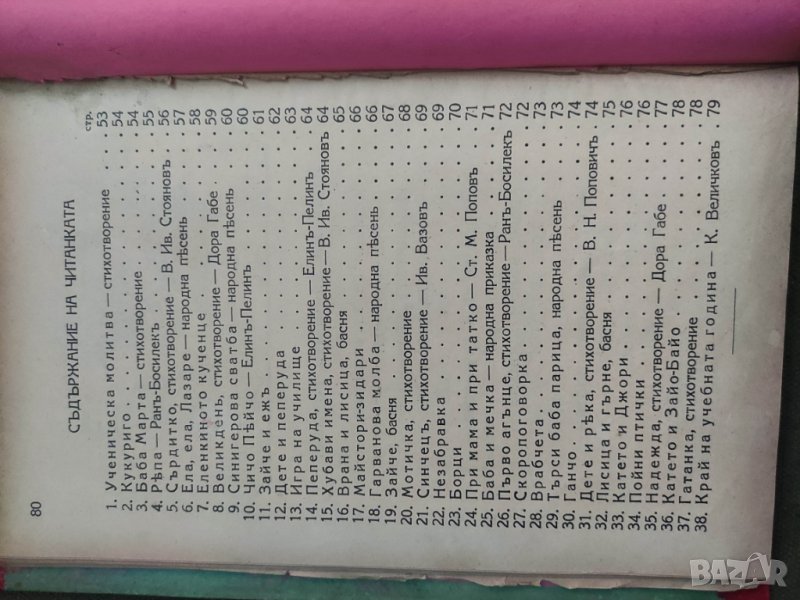 80
СЪДЪРЖАНИЕ НА ЧИТАНКАТА
стр.
1. Ученическа молитва — стихотворение . 53
2. Кукуриго . . . . . . . . 54
3. Баба Марта — стихотворение . . . . 54
4. Рѣпа — Ранъ-Босилекъ . . . . . 55
5. Сърдитко, стихотворение — В. Ив. Стояновъ . 56
6. Ела, ела, Лазаре — народна пѣсень . . 57
7. Еленкиното кученце . . . . . 58
8. Великдень, стихотворение — Дора Габе . 59
9. Синигерова сватба — народна пѣсень . . 60
10. Чичо Пѣйчо — Елинъ-Пелинъ . . . . 60
11. Зайче и ежъ . . . . . . . 61
12. Дете и пеперуда . . . . . . 62
13. Игра на училище . . . . . . 63
14. Пеперуда, стихотворение — Елинъ-Пелинъ . 64
15. Хубави имена, стихотворение — В. Ив. Стояновъ 64
16. Врана и лисица, басня . . . . . 65
17. Майстори-зидари . . . . . . 66
18. Гарванова молба — народна пѣсень . . 66
19. Зайче, басня . . . . . . . 67
20. Мотичка, стихотворение . . . . . 68
21. Синчецъ, стихотворение — Ив. Вазовъ . . 69
22. Незабравка . . . . . . . 69
23. Борци . . . . . . . . 70
24. При мама и при татко — Ст. М. Поповъ . 71
25. Баба и мечка — народна приказка . . . 71
26. Първо агънце, стихотворение — Ранъ-Босилекъ 72
27. Скоропоговорка . . . . . . 72
28. Врабчета . . . . . . . . 73
29. Търси баба парица, народна пѣсень . . 73
30. Ганчо . . . . . . . . 74
31. Дете и рѣка, стихотворение — В. Н. Поповичъ . 74
32. Лисица и гърне, басня . . . . . 75
33. Катето и Джори . . . . . . 76
34. Пойни птички . . . . . . . 76
35. Надежда, стихотворение — Дора Габе . . 77
36. Катето и Зайо-Байо . . . . . . 78
37. Гатанка, стихотворение . . . . . 78
38. Край на учебната година — К. Величковъ . 79
BAZAR